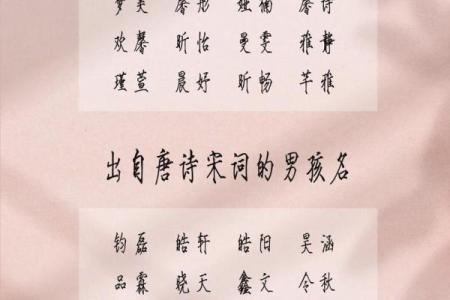 梦 馨彤 馨诗
欢馨 昕怡 曼雯 雅静
瑾萱 晨妤 昕畅 芊雅
出自唐诗宋词的男孩名
钧磊 皓轩 皓阳 昊涵
品霖 晓天 鑫文 令秋